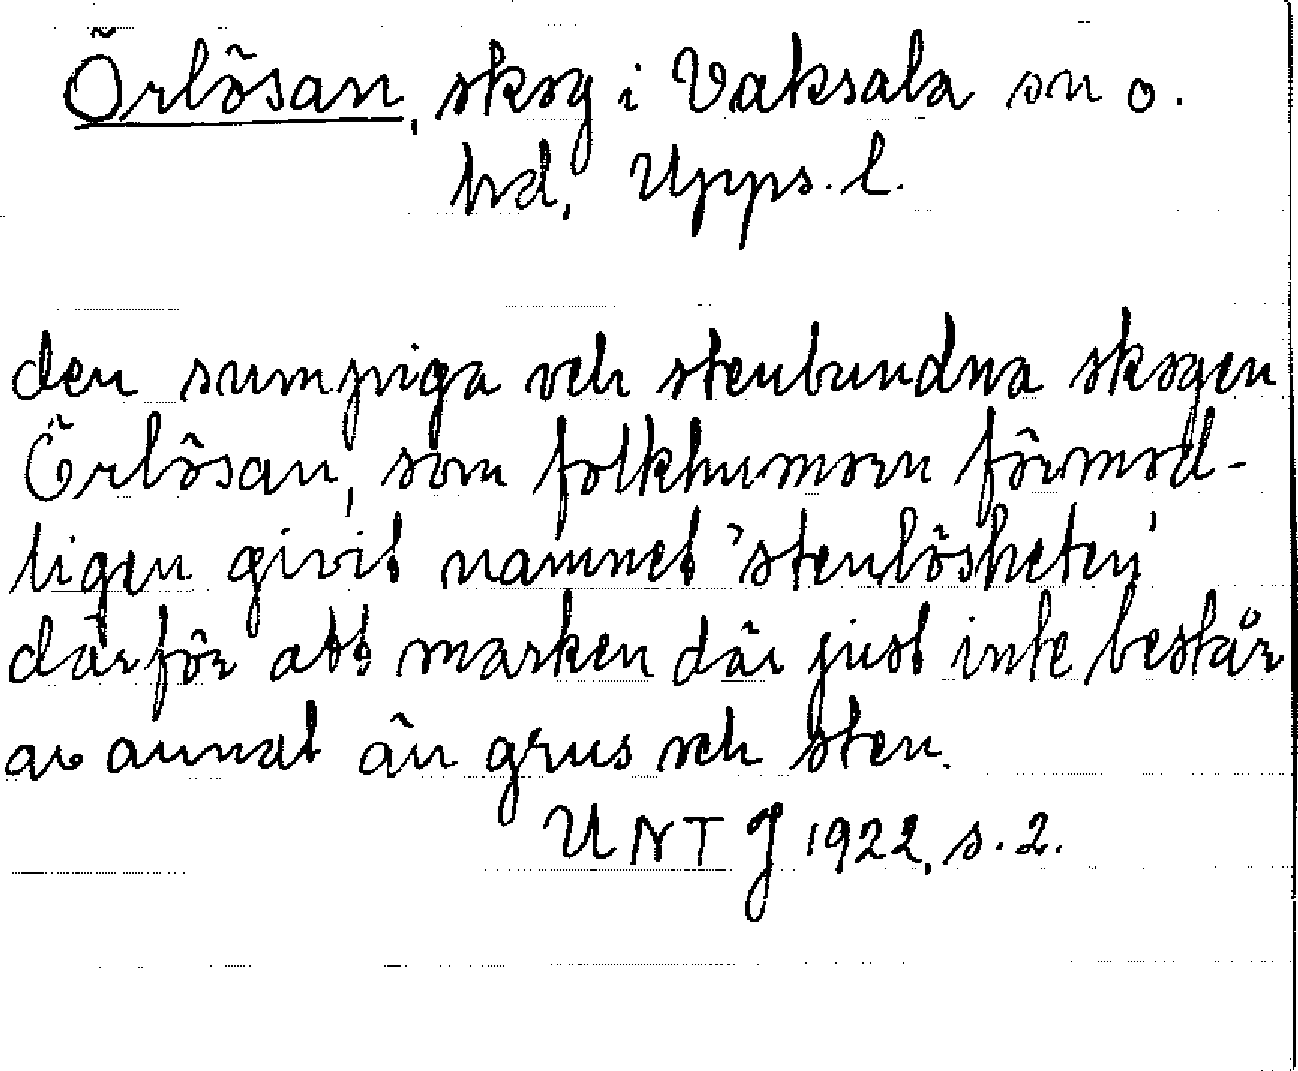 Örlösan, skog i Vaksala sn o.
hd, Upps. l.
den sumpiga och stenbundna skogen
Örlösan, som folkhumorn förmod-
ligen givit namnet 'stenlösheten'
därför att marken där just inte består
av annat än grus och sten.
UNT J 1922, s. 2.